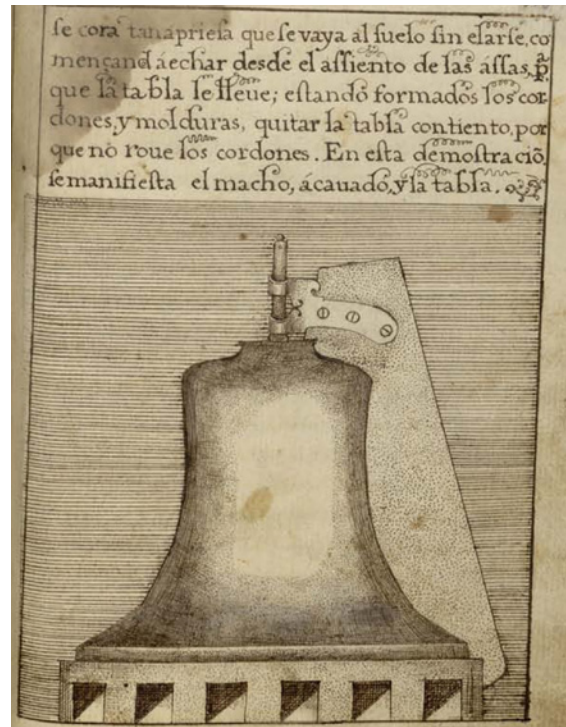 ſe cora tan aprieſa que ſe vaya al ſuelo ſin elarſe, co
mençand á echar desde el aſſiento de las aſſas, p̃a
que la tabla le lleue; eſtando formados los cor-
dones, y molduras, quitar la tabla contiento, por
que nò roue los cordones. En eſta demoſtraciõ,
ſe manifieſta el macho, ácauadó, y la tabla.